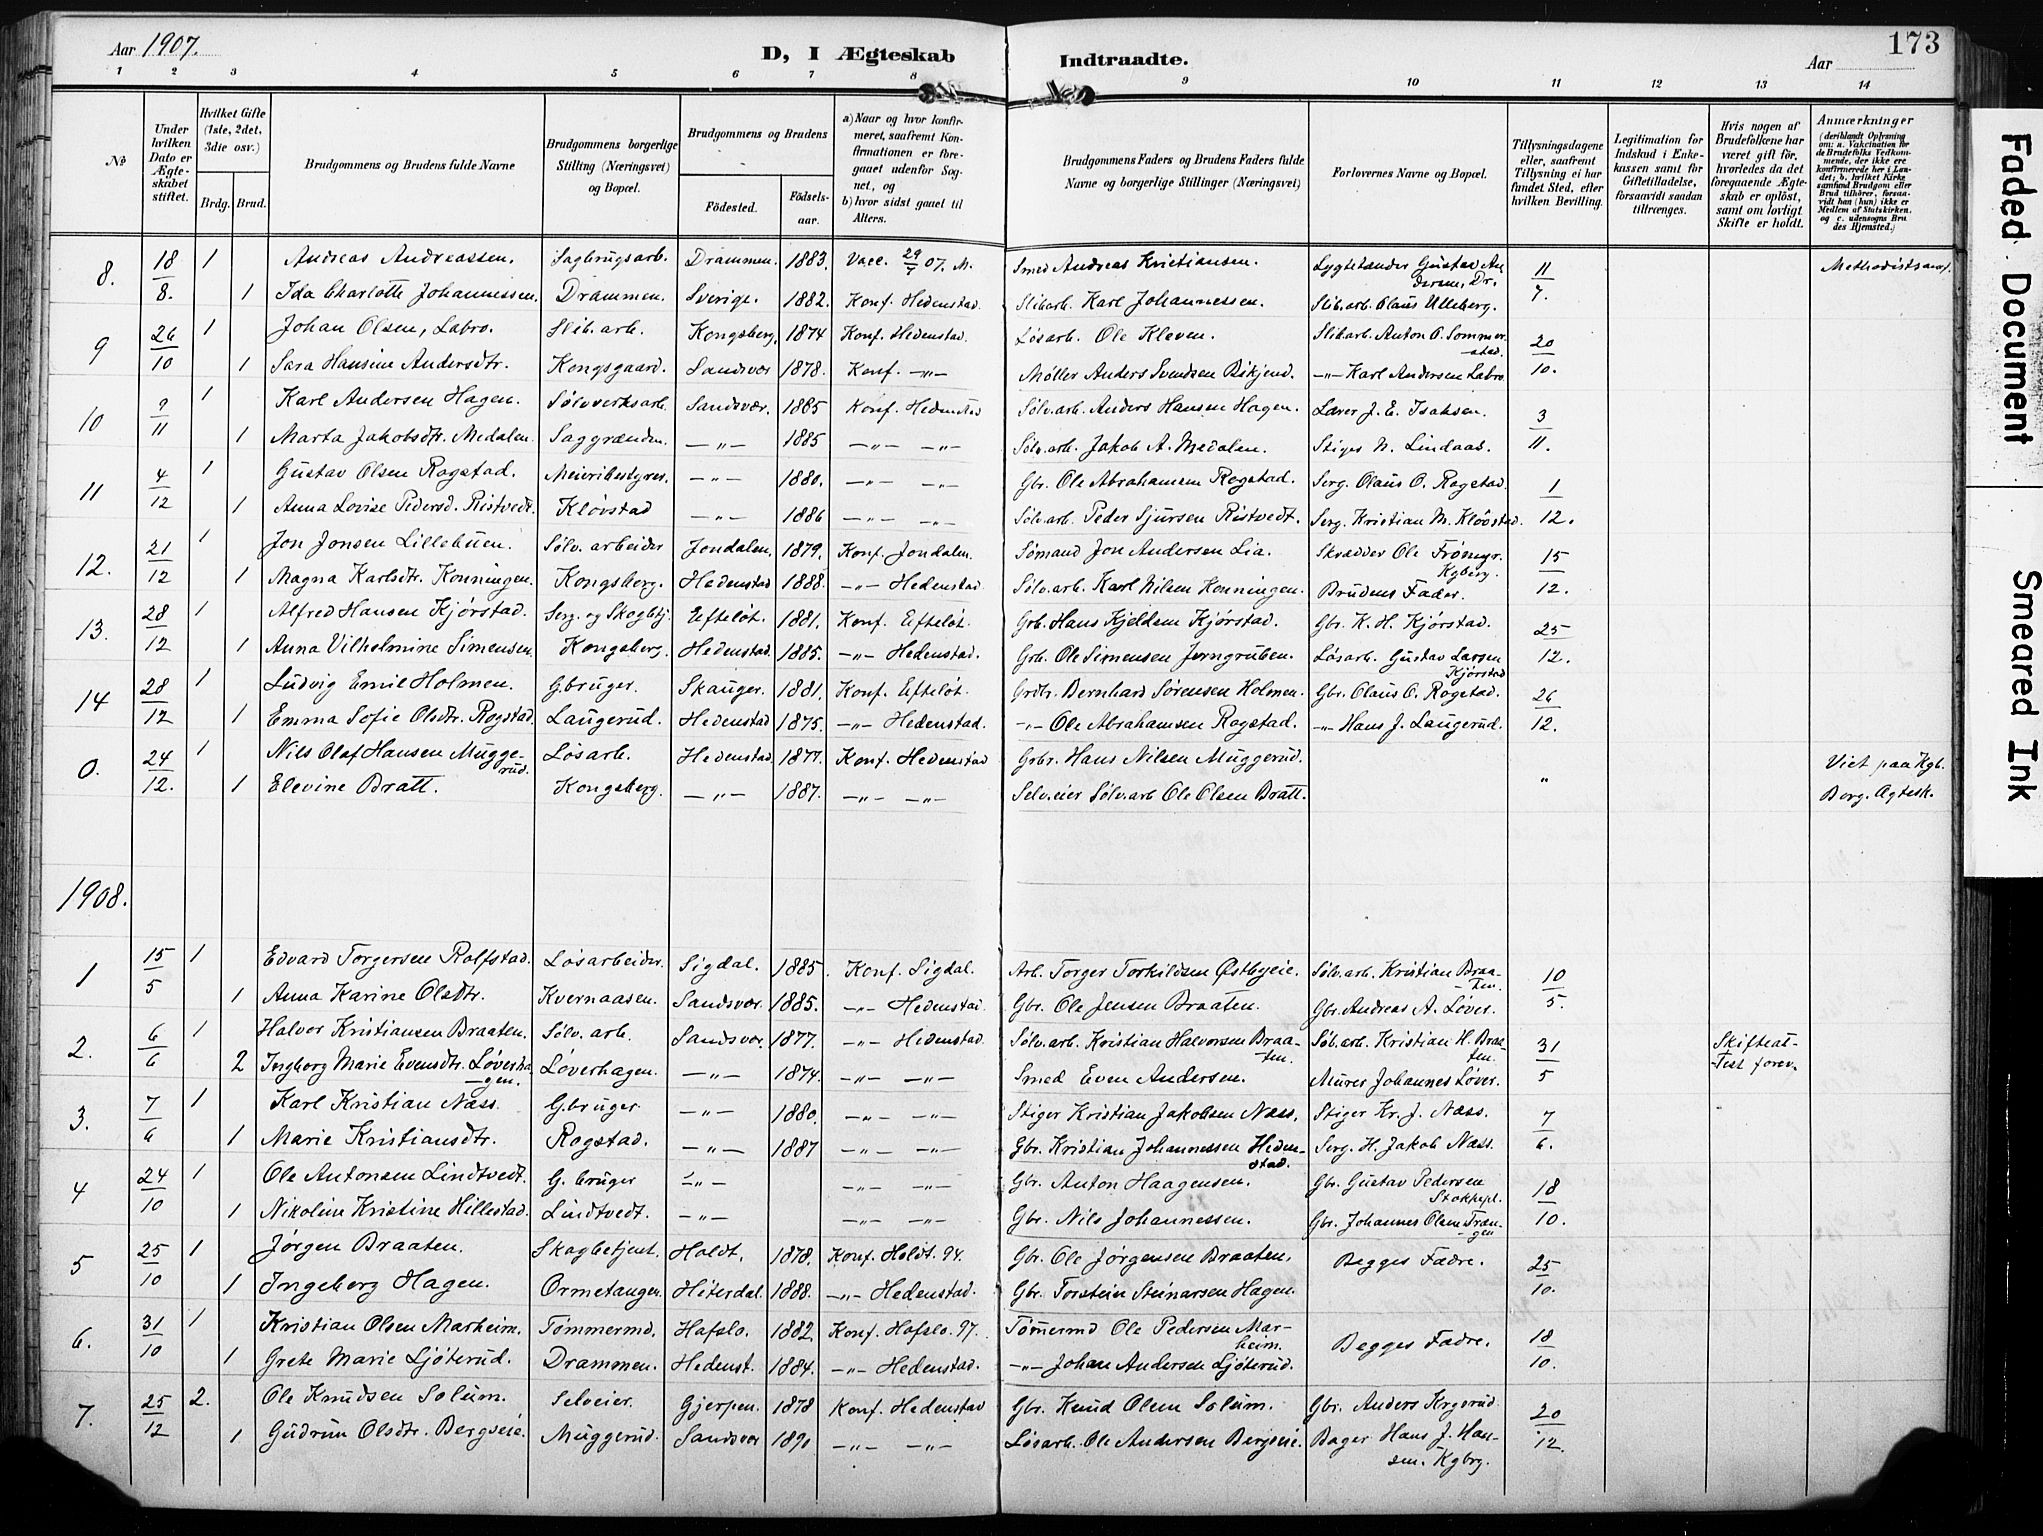 Aar 1907.
D, I Ægteskab Indtraadte.
Aar
173
1 2 3 4 5 6 7 8 9 10 11 12 13 14
No
Under hvilken Dato er Ægteskabet stiftet.
Hvilket Gifte (1ste, 2det, 3die osv.)
Brdg. Brud.
Brudgommens og Brudens fulde Navne
Brudgommens borgerlige Stilling (Næringsvei) og Bopæl.
Brudgommens og Brudens
Födested. Födsels-aar.
a) Naar og hvor konfirmeret, saafremt Konfirmationen er foregaaet udenfor Sognet, og
b) hvor sidst gaaet til Alters.
Brudgommens Faders og Brudens Faders fulde Navne og borgerlige Stillinger (Næringsvei)
Forlovernes Navne og Bopæl.
Tillysningsdagene eller, saafremt Tillysning ei har fundet Sted, efter hvilken Bevilling.
Legitimation for Indskud i Enkekassen samt for Giftetilladelse, forsaavidt saadan tiltrænges.
Hvis nogen af Brudefolkene har været gift før, hvorledes da det foregaaende Ægteskab er oplöst, samt om lovligt Skifte er holdt.
Anmærkninger (deriblandt Oplysning om: a. Vakcination for de Brudefolks Vedkommende, der ikke ere konfirmerede her i Landet; b. hvilket Kirkesamfund Brudgom eller Brud tilhörer, forsaavidt han (hun) ikke er Medlem af Statskirken, og c. udensogns Brudes Hjemsted.)
8. 18/8. 1 Andreas Andreassen. Sagbrugsarb. Drammen. 1883. Vacc. 29/7 07. M. Smed Andreas Kristiansen. Lygtetænder Gustav Andersen, Dr. 11/7. Methodistsamf.
1 Ida Charlotte Johannessen. Drammen. Sverige. 1882. Konf. Hedenstad. Slibarb. Karl Johannessen. Slib.arb. Claus Ulleberg.
9 26/10 1 Johan Olsen, Labro. Slib.arb. Kongsberg, 1874 Konf. Hedenstad. Løsarb. Ole Kleven. Slibarb. Anton O. Sommerstad. 20/10.
1 Sara Hansine Andersdtr. Kongsgaard. Sandsvær 1878. Konf. -"- Møller Anders Svendsen Bikjend. -"- Karl Andersen Labro
10 9/11 1 Karl Andersen Hagen. Sølvverksarb. Sandsvær. 1885 Konf. Hedenstad Sølv.arb. Anders Hansen Hagen. Lærer J. E. Isaksen. 3/11.
1 Marta Jakobsdtr. Medalen. Saggrænden. -"- 1885 -"- -"- Sølv.arb. Jakob A. Medalen. Stiger N. Lindaas.
11 4/12 1 Gustav Olsen Rogstad. Meieribestyrer. -"- 1880. -"- -"- Gbr. Ole Abrahamsen Rogstad. Serg. Olaus O. Rogstad. 1/12.
1 Anna Lovise Pedersd. Ristvedt. Kløvstad -"- 1886 -"- -"- Sølv.arb. Peder Sjursen Ristvedt. Serg. Kristian M. Kløvstad.
12. 21/12 1 Jon Jonsen Lillebuen. Sølv. arbeider Jondalen. 1879. Konf. Jondalen. Sømand Jon Andersen Lia. Skrædder Ole Frömyr. Kgberg. 15/12.
1 Magna Karlsdtr. Konningen. Kongsberg. Hedenstad 1888. -"- Hedenstad Sølv.arb. Karl Nilsen Konningen. Brudens Fader.
13. 28/12 1 Alfred Hansen Kjørstad. Serg. og Skogbtj. Efteløt. 1881. Konf. Efteløt. Grb. Hans Kjeldsen Kjørstad. Gbr. K. H. Kjørstad. 25/12.
1 Anna Vilhelmine Simensen. Kongsberg. Hedenstad. 1885. -"- Hedenstad. Grb. Ole Simensen Jerngruben. Løsarb. Gustav Larsen Kjørstad
14 28/12 1 Ludvig Emil Holmen. G.bruger. Skauger. 1881. Konf. Efteløt. Grdbr. Bernhard Sørensen Holmen. Gbr. Olaus O. Rogstad. 26/12.
1 Emma Sofie Olsdtr. Rogstad. Laugerud. Hedenstad 1875. -"- Hedenstad. -"- Ole Abrahamsen Rogstad. -"- Hans J. Laugerud.
0. 24/12. 1 Nils Olaf Hansen Muggerud. Løsarb. Hedenstad 1877. Konf. Hedenstad Grbr. Hans Nilsen Muggerud. " Viet paa Kgb.
1 Elevine Bratt. Kongsberg. -"- 1887. -"- -"- Selv.eier Sølv.arb Ole Olsen Bratt. Borg. Ægtesk.
1908.
1 15/5 1 Edvard Torgersen Rolfstad. Løsarbeider. Sigdal. 1885. Konf. Sigdal. Arb. Torger Torkildsen Østbyeie. Sølv.arb. Kristian Braaten. 10/5.
1 Anna Karine Olsdtr. Kvernaasen. Sandsvær. 1885. -"- Hedenstad. Gbr. Ole Jensen Braaten. Gbr. Andreas A. Løver.
2. 6/6 1 Halvor Kristiansen Braaten. Sølv. arb. Sandsvær. 1877. -"- Hedenstad. Sølv.arb. Kristian Halvorsen Braaten. Søb.arb. Kristian H. Braaten. 31/5 Skifteattest forev.
2 Ingborg Marie Evensdtr. Løverhagen. Løverhagen. -"- 1874. -"- -"- Smed Even Andersen. Murer Johannes Løver.
3. 7/6 1 Karl Kristian Næss. G.bruger -"- 1880. -"- -"- Stiger Kristian Jakobsen Næss. Stiger Kr. J. Næss. 7/6.
1 Marie Kristiansdtr. Rogstad. -"- 1887 -"- -"- Gbr. Kristian Johannessen Hedenstad. Serg. H. Jakob Næss.
4 24/10 1 Ole Antonsen Lindtvedt. G. bruger -"- -"- -"- Gbr. Anton Haagensen. Gbr. Gustav Pedersen Stokkepl. 18/10.
1 Nikoline Kristine Hillestad. Lindtvedt. -"- -"- -"- Gbr. Nils Johannessen. Gbr. Johannes Olsen Trangen
5 25/10 1 Jørgen Braaten. Skogbetjent. Holdt. 1878. Konf. Holdt. 94. Gbr. Ole Jørgensen Braaten. Begges Fædre. 25/10.
1 Ingeborg Hagen. Ormetangen. Hiterdal. 1888. -"- Hedenstad. Gbr. Torstein Steinarsen Hagen.
6. 31/10 1 Kristian Olsen Marheim. Tømmermd. Hafslo. 1882. Konf. Hafslo. 97. Tømmermd Ole Pedersen Marheim. Begges Fædre. 18/10.
1 Grete Marie Ljøterud. Drammen. Hedenst. 1884. -"- Hedenstad. -"- Johan Andersen Ljøterud.
7. 25/12 2. Ole Knudsen Solum. Selveier. Gjerpen. 1878 Konf. Hedenstad Gbr. Knud Olsen Solum. Gbr. Anders Krgsrud. 20/12.
1 Gudrun Olsdtr. Bergseie. Muggerud. Sandsvær 1890 -"- -"- Løsarb. Ole Andersen Bergseie. Bager Hans J. Hansen. Kgbrg.
Faded Document
Smeared Ink